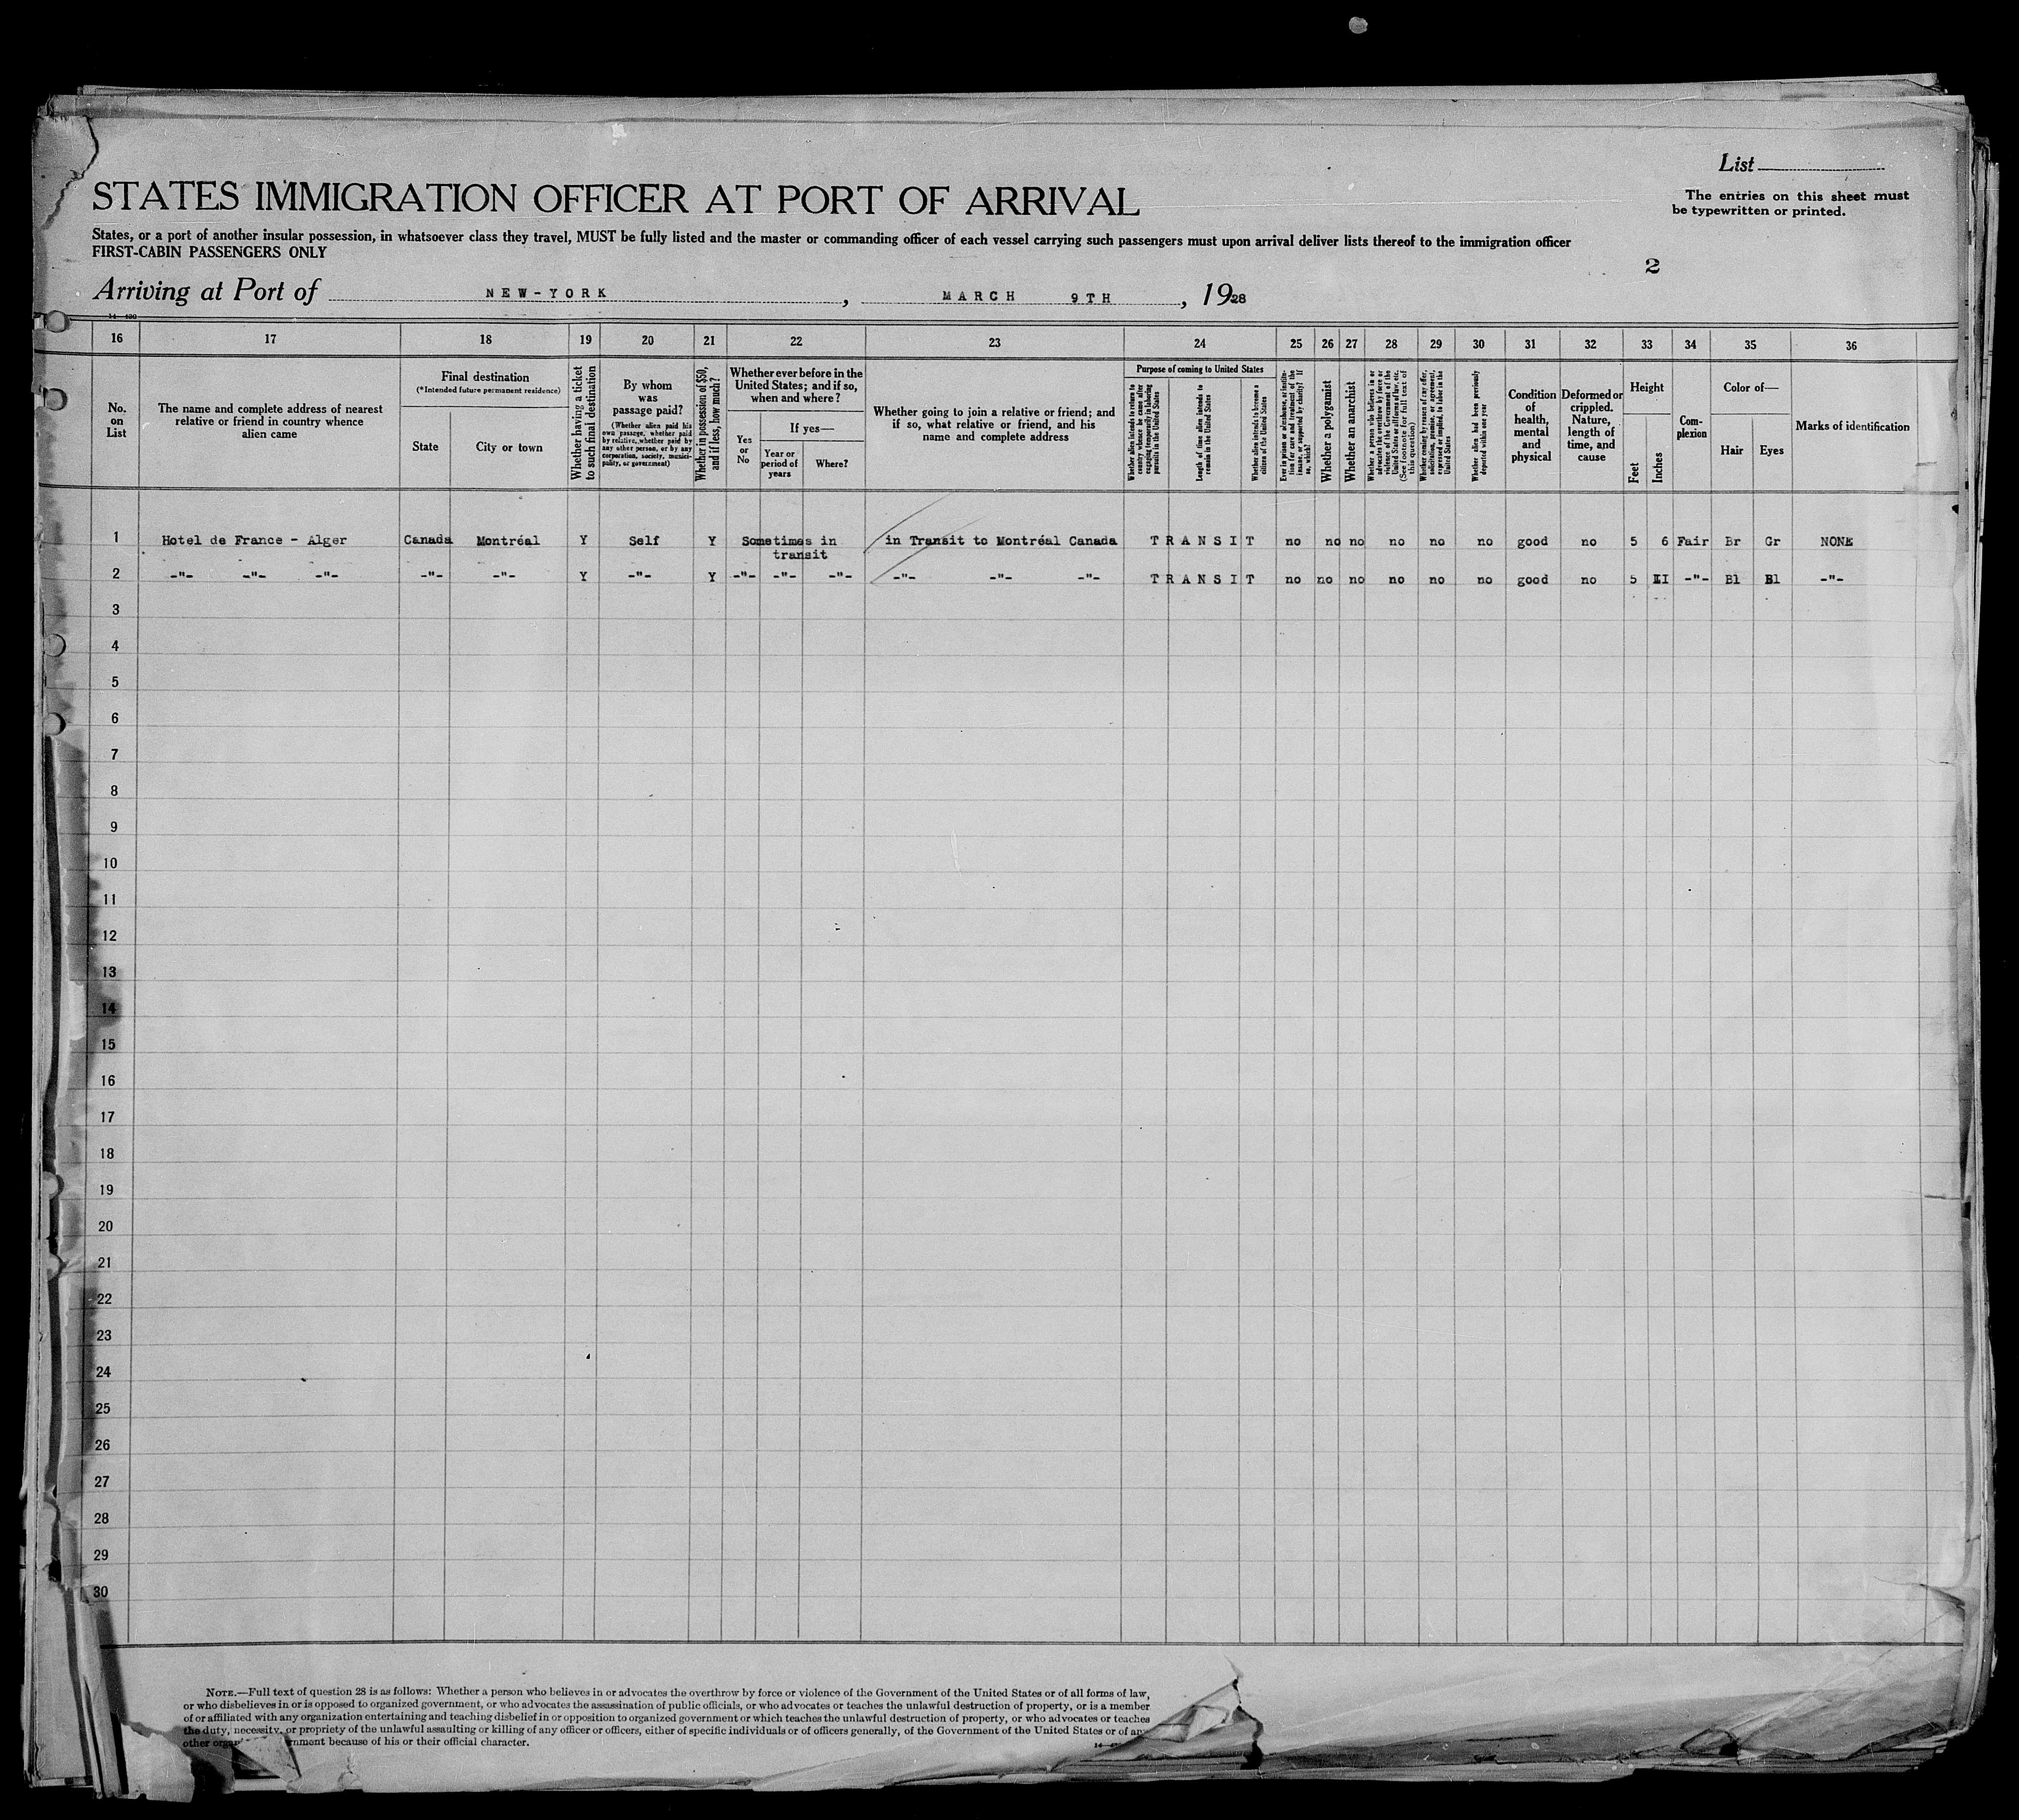 List
STATES IMMIGRATION OFFICER AT PORT OF ARRIVAL
The entries on this sheet must
be typewritten or printed.
States, or a port of another insular possession, in whatsoever class they travel, MUST be fully listed and the master or commanding officer of each vessel carrying such passengers must upon arrival deliver lists thereof to the immigration officer
FIRST-CABIN PASSENGERS ONLY
2
Arriving at Port of NEW-YORK, MARCH 9TH, 1928
16 17 18 19 20 21 22 23 24 25 26 27 28 29 30 31 32 33 34 35 36
No.
on
List
The name and complete address of nearest
relative or friend in country whence
alien came
Final destination
(*Intended future permanent residence)
State
City or town
Whether having a ticket
to such final destination
By whom
was
passage paid?
(Whether alien paid his
own passage, whether paid
by relative, whether paid by
any other person, or by any
corporation, society, munici-
pality, or government)
Whether in possession of $50,
and if less, how much?
Whether ever before in the
United States; and if so,
when and where?
Yes
or
No
If yes—
Year or
period of
years
Where?
Whether going to join a relative or friend; and
if so, what relative or friend, and his
name and complete address
Purpose of coming to United States
Whether alien intends to return to
country whence he came after
engaging temporarily in laboring
pursuits in the United States
Length of time alien intends to
remain in the United States
Whether alien intends to become a
citizen of the United States
Ever in prison or almshouse, or institu-
tion for care and treatment of the
insane, or supported by charity? If
so, which?
Whether a polygamist
Whether an anarchist
Whether a person who believes in or
advocates the overthrow by force or
violence of the Government of the
United States or all forms of law, etc.
(See footnote for full text of
this question)
Whether coming by reason of any offer,
solicitation, promise, or agreement,
expressed or implied, to labor in the
United States
Whether alien had been previously
deported within one year
Condition
of
health,
mental
and
physical
Deformed or
crippled.
Nature,
length of
time, and
cause
Height
Feet
Inches
Com-
plexion
Color of—
Hair
Eyes
Marks of identification
1 Hotel de France - Alger Canada Montréal Y Self Y Sometimes in in Transit to Montréal Canada TRANSIT no no no no no no good no 5 6 Fair Br Gr NONE
transit
2 -"- -"- -"- -"- -"- Y -"- Y -"- -"- -"- -"- -"- -"- TRANSIT no no no no no no good no 5 II -"- Bl Bl -"-
3
4
5
6
7
8
9
10
11
12
13
14
15
16
17
18
19
20
21
22
23
24
25
26
27
28
29
30
NOTE.—Full text of question 28 is as follows: Whether a person who believes in or advocates the overthrow by force or violence of the Government of the United States or of all forms of law,
or who disbelieves in or is opposed to organized government, or who advocates the assassination of public officials, or who advocates or teaches the unlawful destruction of property, or is a member
of or affiliated with any organization entertaining and teaching disbelief in or opposition to organized government or which teaches the unlawful destruction of property, or who advocates or teaches
the duty, necessity, or propriety of the unlawful assaulting or killing of any officer or officers, either of specific individuals or of officers generally, of the Government of the United States or of any
other because of his or their official character.